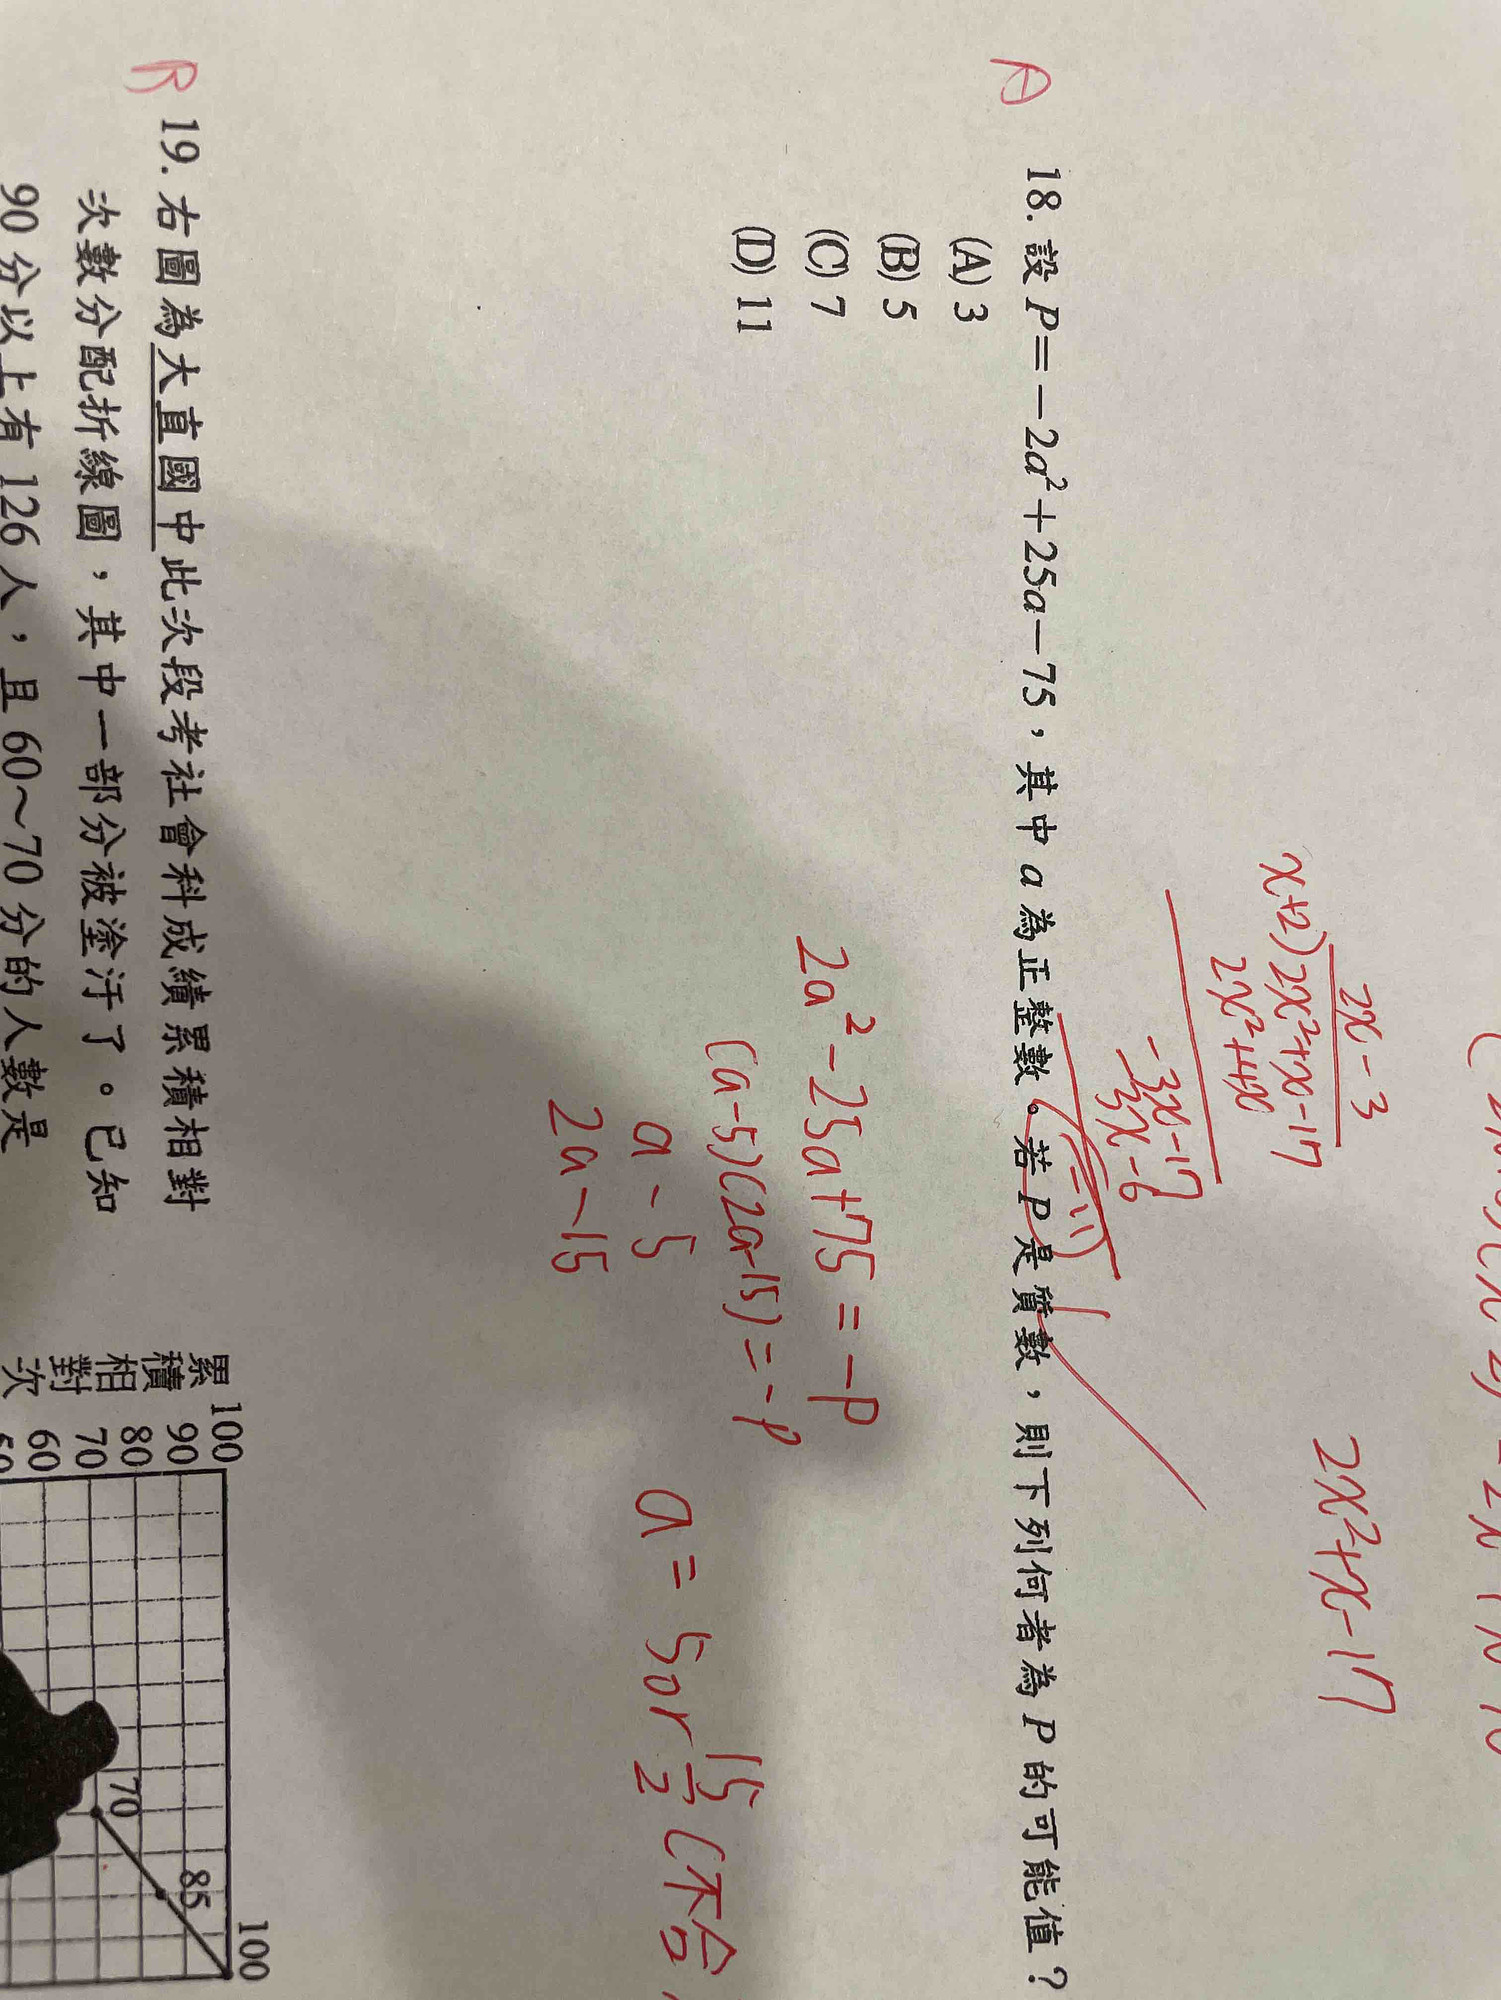 2x²+x-17
2x-3
x+2)2x²+x-17
2x²+4x
-3x-17
-3x-6
-11
A
18. 設 P=-2a²+25a-75,其中 a 為正整數。若 P 是質數,則下列何者為 P 的可能值?
(A) 3
(B) 5
(C) 7
(D) 11
2a²-25a+75=-P
(a-5)(2a-15)=-P
a-5
2a-15
a=5or 15/2 (不合
19. 右圖為大直國中此次段考社會科成績累積相對
次數分配折線圖,其中一部分被塗汙了。已知
90 分以上有 126 人,且 60~70 分的人數是
累積相對次
100
90
80
70
60
50
70
85
100